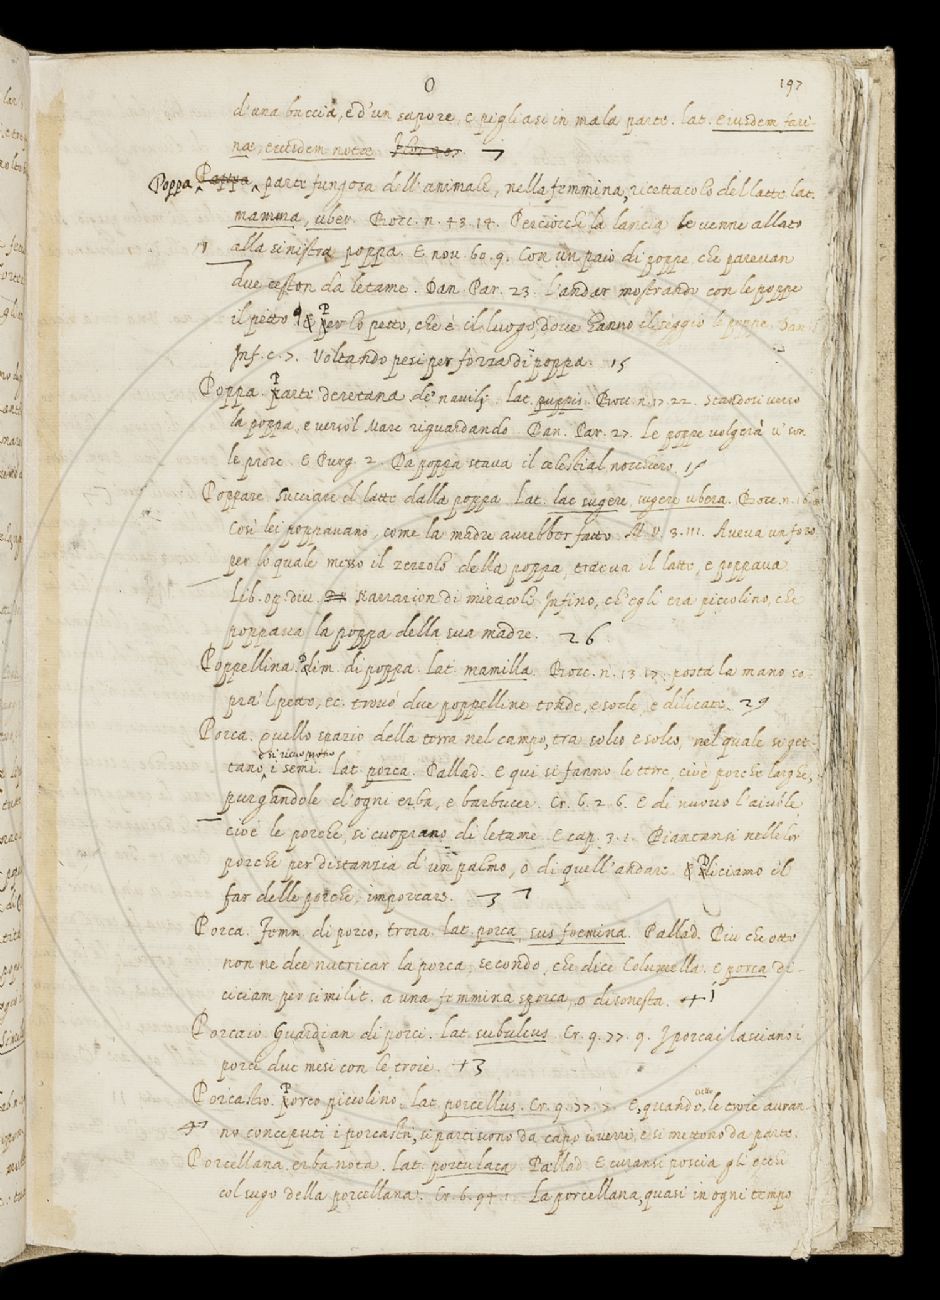 O
197
d'una buccia, e d'un sapore, e pigliasi in mala parte. lat. eiusdem fari-
nae, eiusdem notae. 7
Poppa Pappa, parte fungosa dell'animale, nella femmina, ricettacolo del latte. lat.
mamma, uber. Bocc. n. 43. 14. Perciocchè la lancia le venne allato
alla sinistra poppa. E nov. 60. 9. Con un paio di poppe, che parevan
due ceston da letame. Dan. Par. 23. l'andar mostrando con le poppe
il petto. & Per lo petto, che è il luogo, dove hanno il seggio le poppe. Dan.
Inf. c. 7. Voltando pesi per forza di poppa. 15
Poppa. Parte deretana de' navilj. lat. puppis. Bocc. n. 17. 22. Standosi verso
la poppa, e verso 'l Mare riguardando. Dan. Par. 27. Le poppe volgerà u' son
le prore. E Purg. 2. Da poppa stava il celestial nocchiero. 15
Poppare. Succiare il latte dalla poppa. Lat. lac sugere, sugere ubera. Bocc. n. 16.
Così lei poppavano, come la madre avrebber fatto. M. V. 8. 111. Aveva un foro,
per lo quale messo il zezzolo della poppa, traeva il latte, e poppava.
Lib. op. div. Narrazion di miracoli. Infino, ch'egli era piccolino, che
poppava la poppa della sua madre. 26
Poppellina. Dim. di poppa. lat. mamilla. Bocc. n. 13. 17. posta la mano so-
pra 'l petto, ec. trovò due poppelline tonde, e sode, e dilicate. 29
Porca. quello spazio della terra nel campo, tra solco e solco, nel quale si get-
tano, e si ricuoprono i semi. lat. porca. Pallad. E qui si fanno le terre, cioè porche larghe,
purgandole d'ogni erba, e barbucce. Cr. 6. 2. 6. E di nuovo l'aiuole
cioè le porche, si cuoprano di letame. E cap. 3. 1. Piantansi nelle lor
porche per distanzia d'un palmo, o di quell'andare. & Diciamo il
far delle porche, imporcare. 3 7
Porca. Femm. di porco, troia. lat. porca, sus foemina. Pallad. Più che otto
non ne dee nutricar la porca, secondo, che dice Columella. E porca di-
ciciam per similit. a una femmina sporca, o disonesta. 41
Porcaio. Guardian di porci. lat. subulcus. Cr. 9. 77. 9. I porcai lasciano i
porci due mesi con le troie. 43
Porcastro. Porco piccolino. Lat. porcellus. Cr. 9. 77. 7. E, quando dette le troie avran-
no conceputi i porcastri, si partiscono da capo i verri, e si mettono da parte.
Porcellana. erba nota. lat. portulaca. Pallad. E curansi poscia gli occhi
col sugo della porcellana. Cr. 6. 94. 1. La porcellana, quasi in ogni tempo